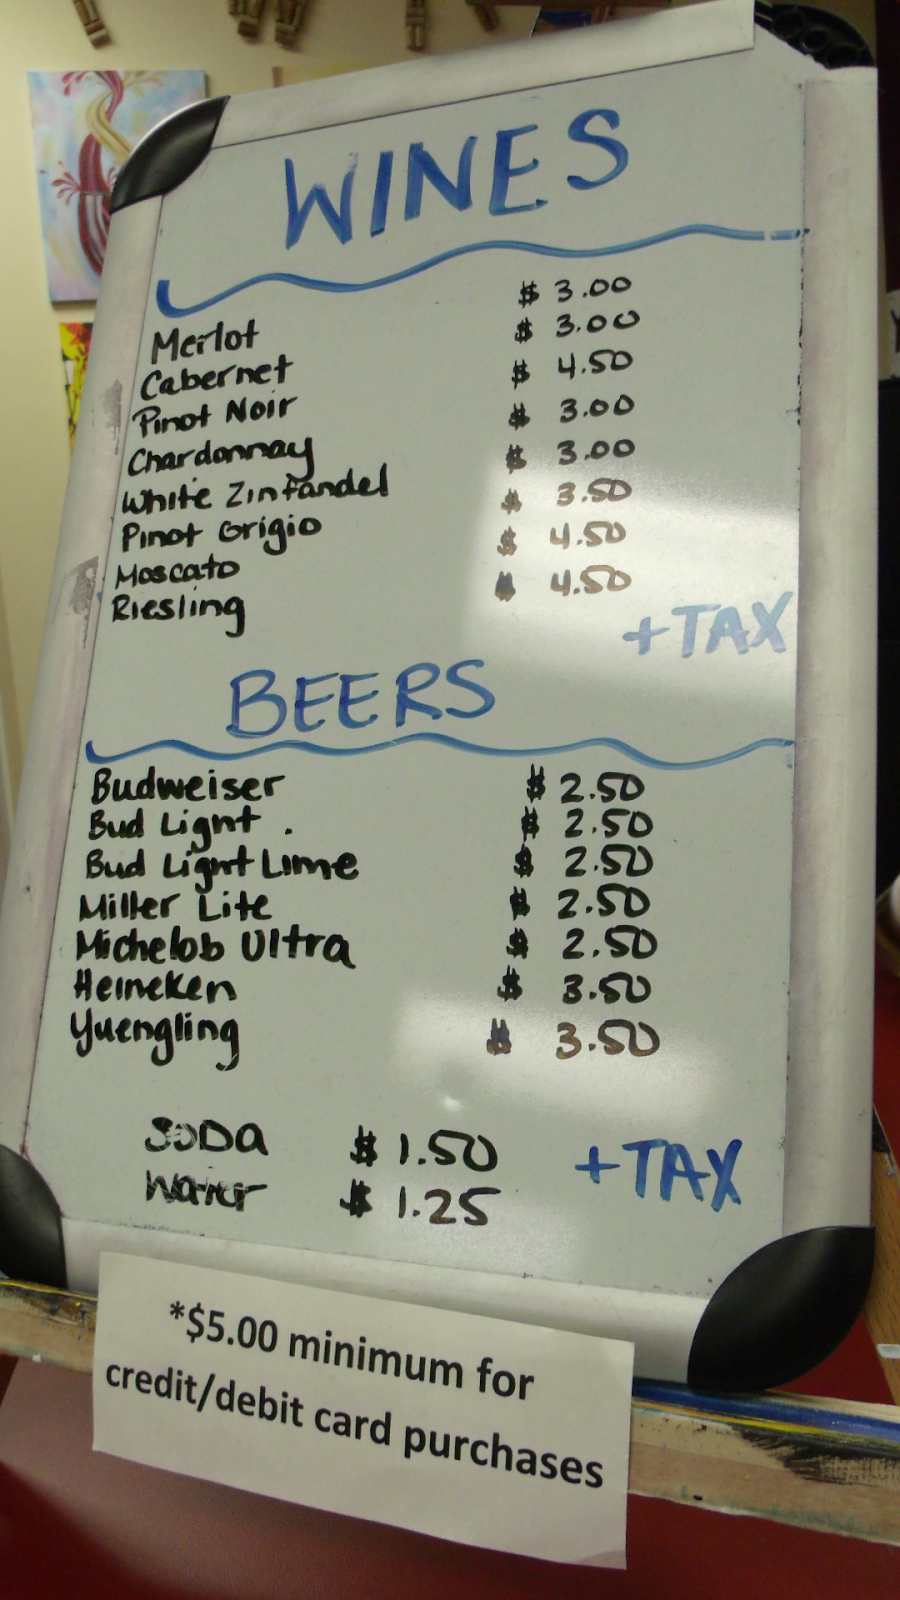 WINES
Merlot $ 3.00
Cabernet $ 3.00
Pinot Noir $ 4.50
Chardonnay $ 3.00
White Zinfandel $ 3.00
Pinot Grigio $ 3.50
Moscato $ 4.50
Riesling $ 4.50
+ TAX
BEERS
Budweiser $ 2.50
Bud Light . $ 2.50
Bud Light Lime $ 2.50
Miller Lite $ 2.50
Michelob Ultra $ 2.50
Heineken $ 3.50
Yuengling $ 3.50
SODA $ 1.50
Water $ 1.25
+ TAX
*$5.00 minimum for
credit/debit card purchases